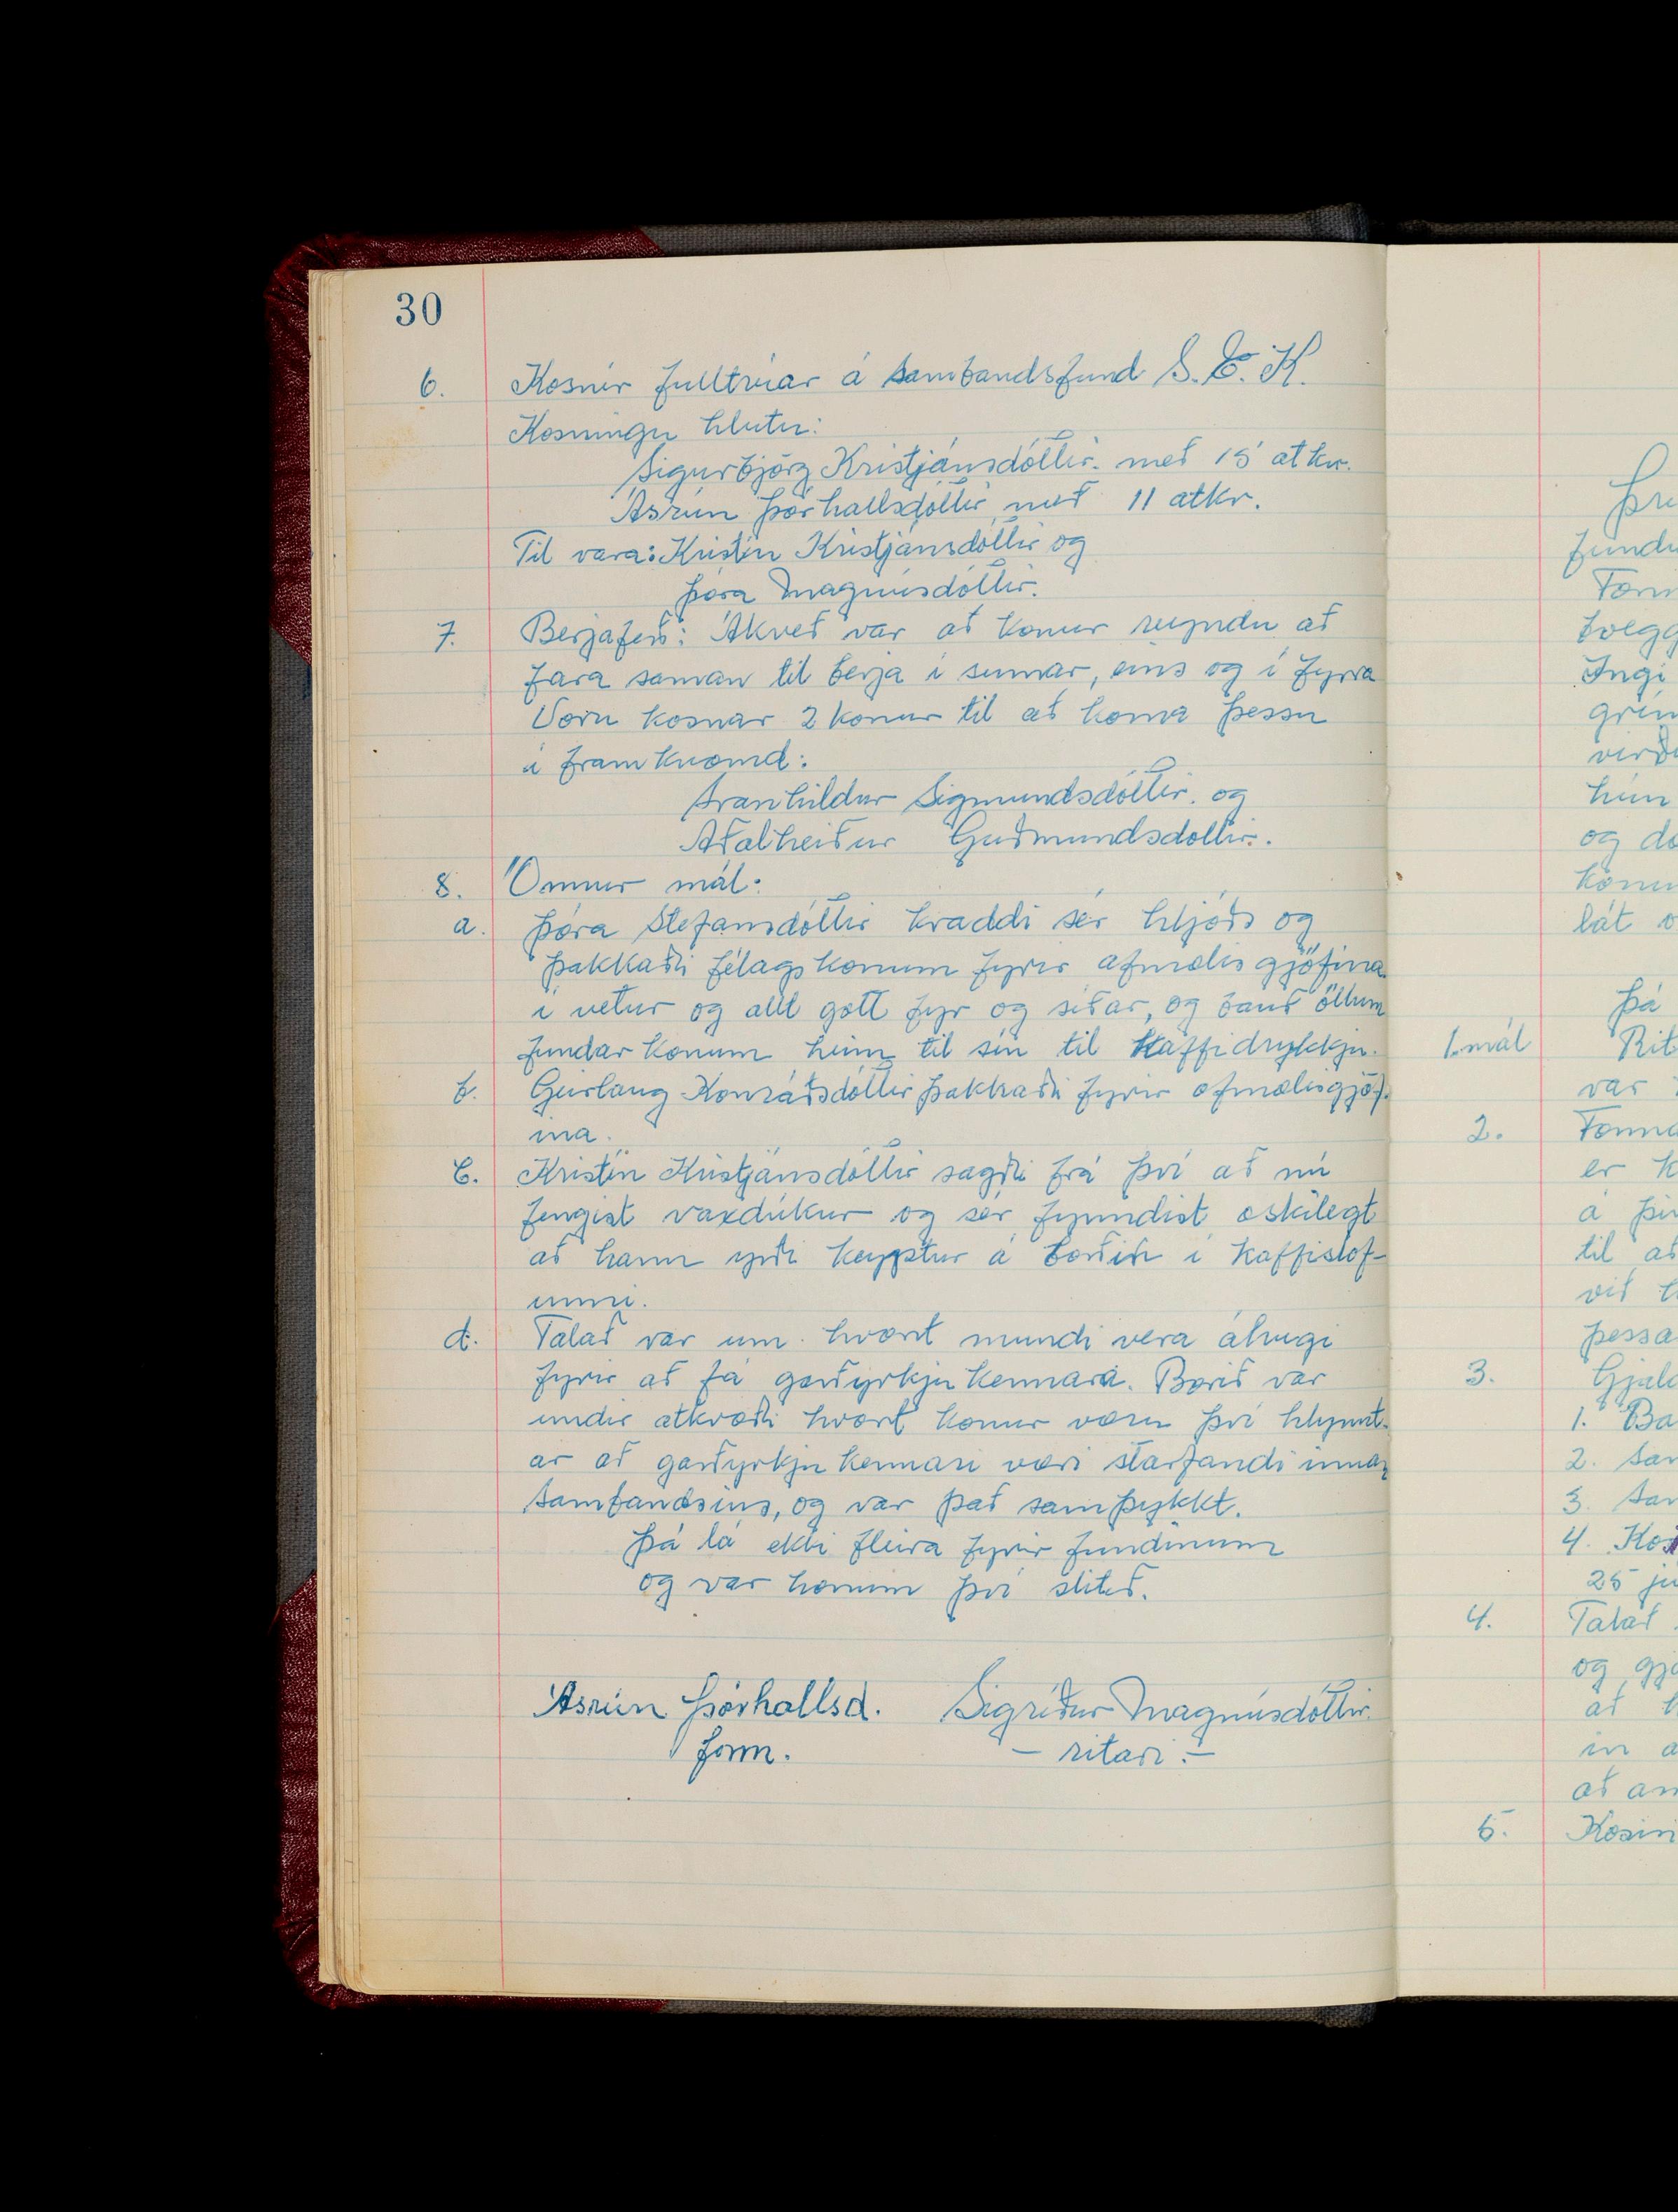 30
6. Kosnir fulltrúar á sambandsfund S.B.K.
Kosningu hlutu:
Sigurbjörg Kristjánsdóttir. með 15 atkv.
Ásrún Þórhallsdóttir, með 11 atkv.
Til vara: Kristín Kristjánsdóttir og
Þóra Magnúsdóttir.
7. Berjaferð: Ákveð var að konur reyndu að
fara saman til berja í sumar, eins og í fyrra
Voru kosnar 2 konur til að koma þessu
í framkvæmd:
Svanhildur Sigmundsdóttir. og
Aðalheiður Guðmundsdóttir.
8. Önnur mál:
a. Þóra Stefansdóttir kvaddi sér hljóðs og
þakkaði félagskonum fyrir afmælisgjöfina
í vetur og allt gott fyr og síðar, og bauð öllum
fundarkonum heim til sín til kaffidrykkju.
b. Geirlaug Konráðsdóttir þakkaði fyrir afmælisgjöf-
ina.
c. Kristín Kristjánsdóttir sagði frá því að nú
fengist vaxdúkur og sér fyndist æskilegt
að hann yrði keyptur á borðin í kaffistof-
unni.
d. Talað var um hvort mundi vera áhugi
fyrir að fá garðyrkjukennara. Borið var
undir atkvæði hvort konur væru því hlynnt-
ar að garðyrkjukennari væri starfandi innan
sambandsins, og var það samþykkt.
Þá lá ekki fleira fyrir fundinum
og var honum því slitið.
Ásrún Þórhallsd. Sigríður Magnúsdóttir
form. - ritari. -
fundu
Ingi
hún
og
lát
Þá
1. mál Rit
var
2.
er
a
til að
við
þessa
3. Gjald
1. Ba
2. Sam
3. Sam
4. Kos
25 jú
4. Talað
og
að
in
að
5. Kosin